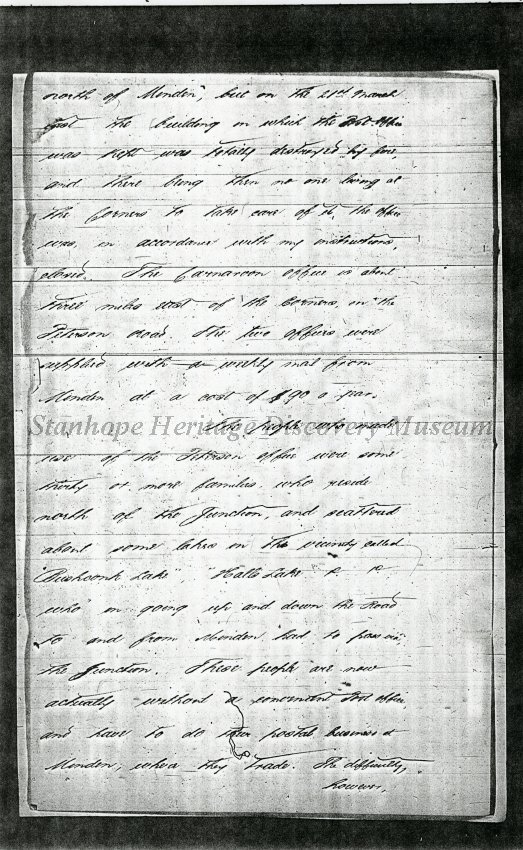 north of Minden", but on the 21st March
last the building in which the Post Office
was kept was totally destroyed by fire,
and there being then no one living at
the Corners to take care of it, the office
was, in accordance with my instructions,
closed. The Carnarvon office is about
three miles west of "the Corners, on "the
Peterson road. The two offices were
supplied with a weekly mail from
Minden at a cost of $90 a year.
The people who made
Stanhope Heritage Discovery Museum
use of the Peterson office were some
thirty or more families, who reside
north of the Junction, and scattered
about some lakes in the vicinity called
"Bushconk Lake", "Halls Lake &c &c
who in going up and down the road
to and from Minden had to pass via
the Junction. These people are now
actually without a convenient Post Office
and have to do their postal business at
Minden, where they trade. The difficulty,
however,